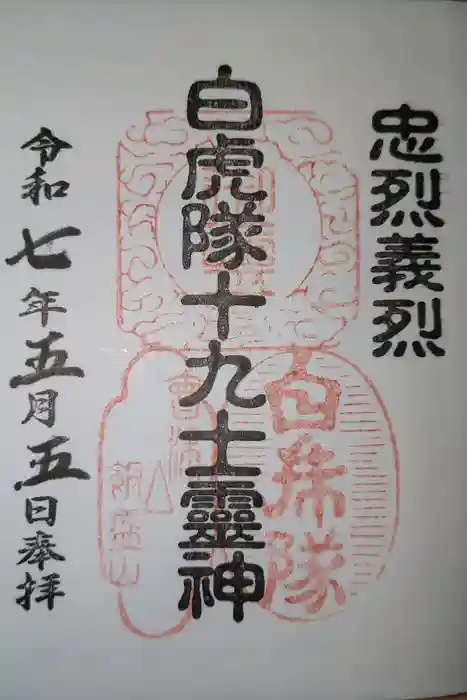 忠烈義烈
白虎隊十九士靈神
令和七年五月五日奉拝
白虎隊
會津
飯盛山